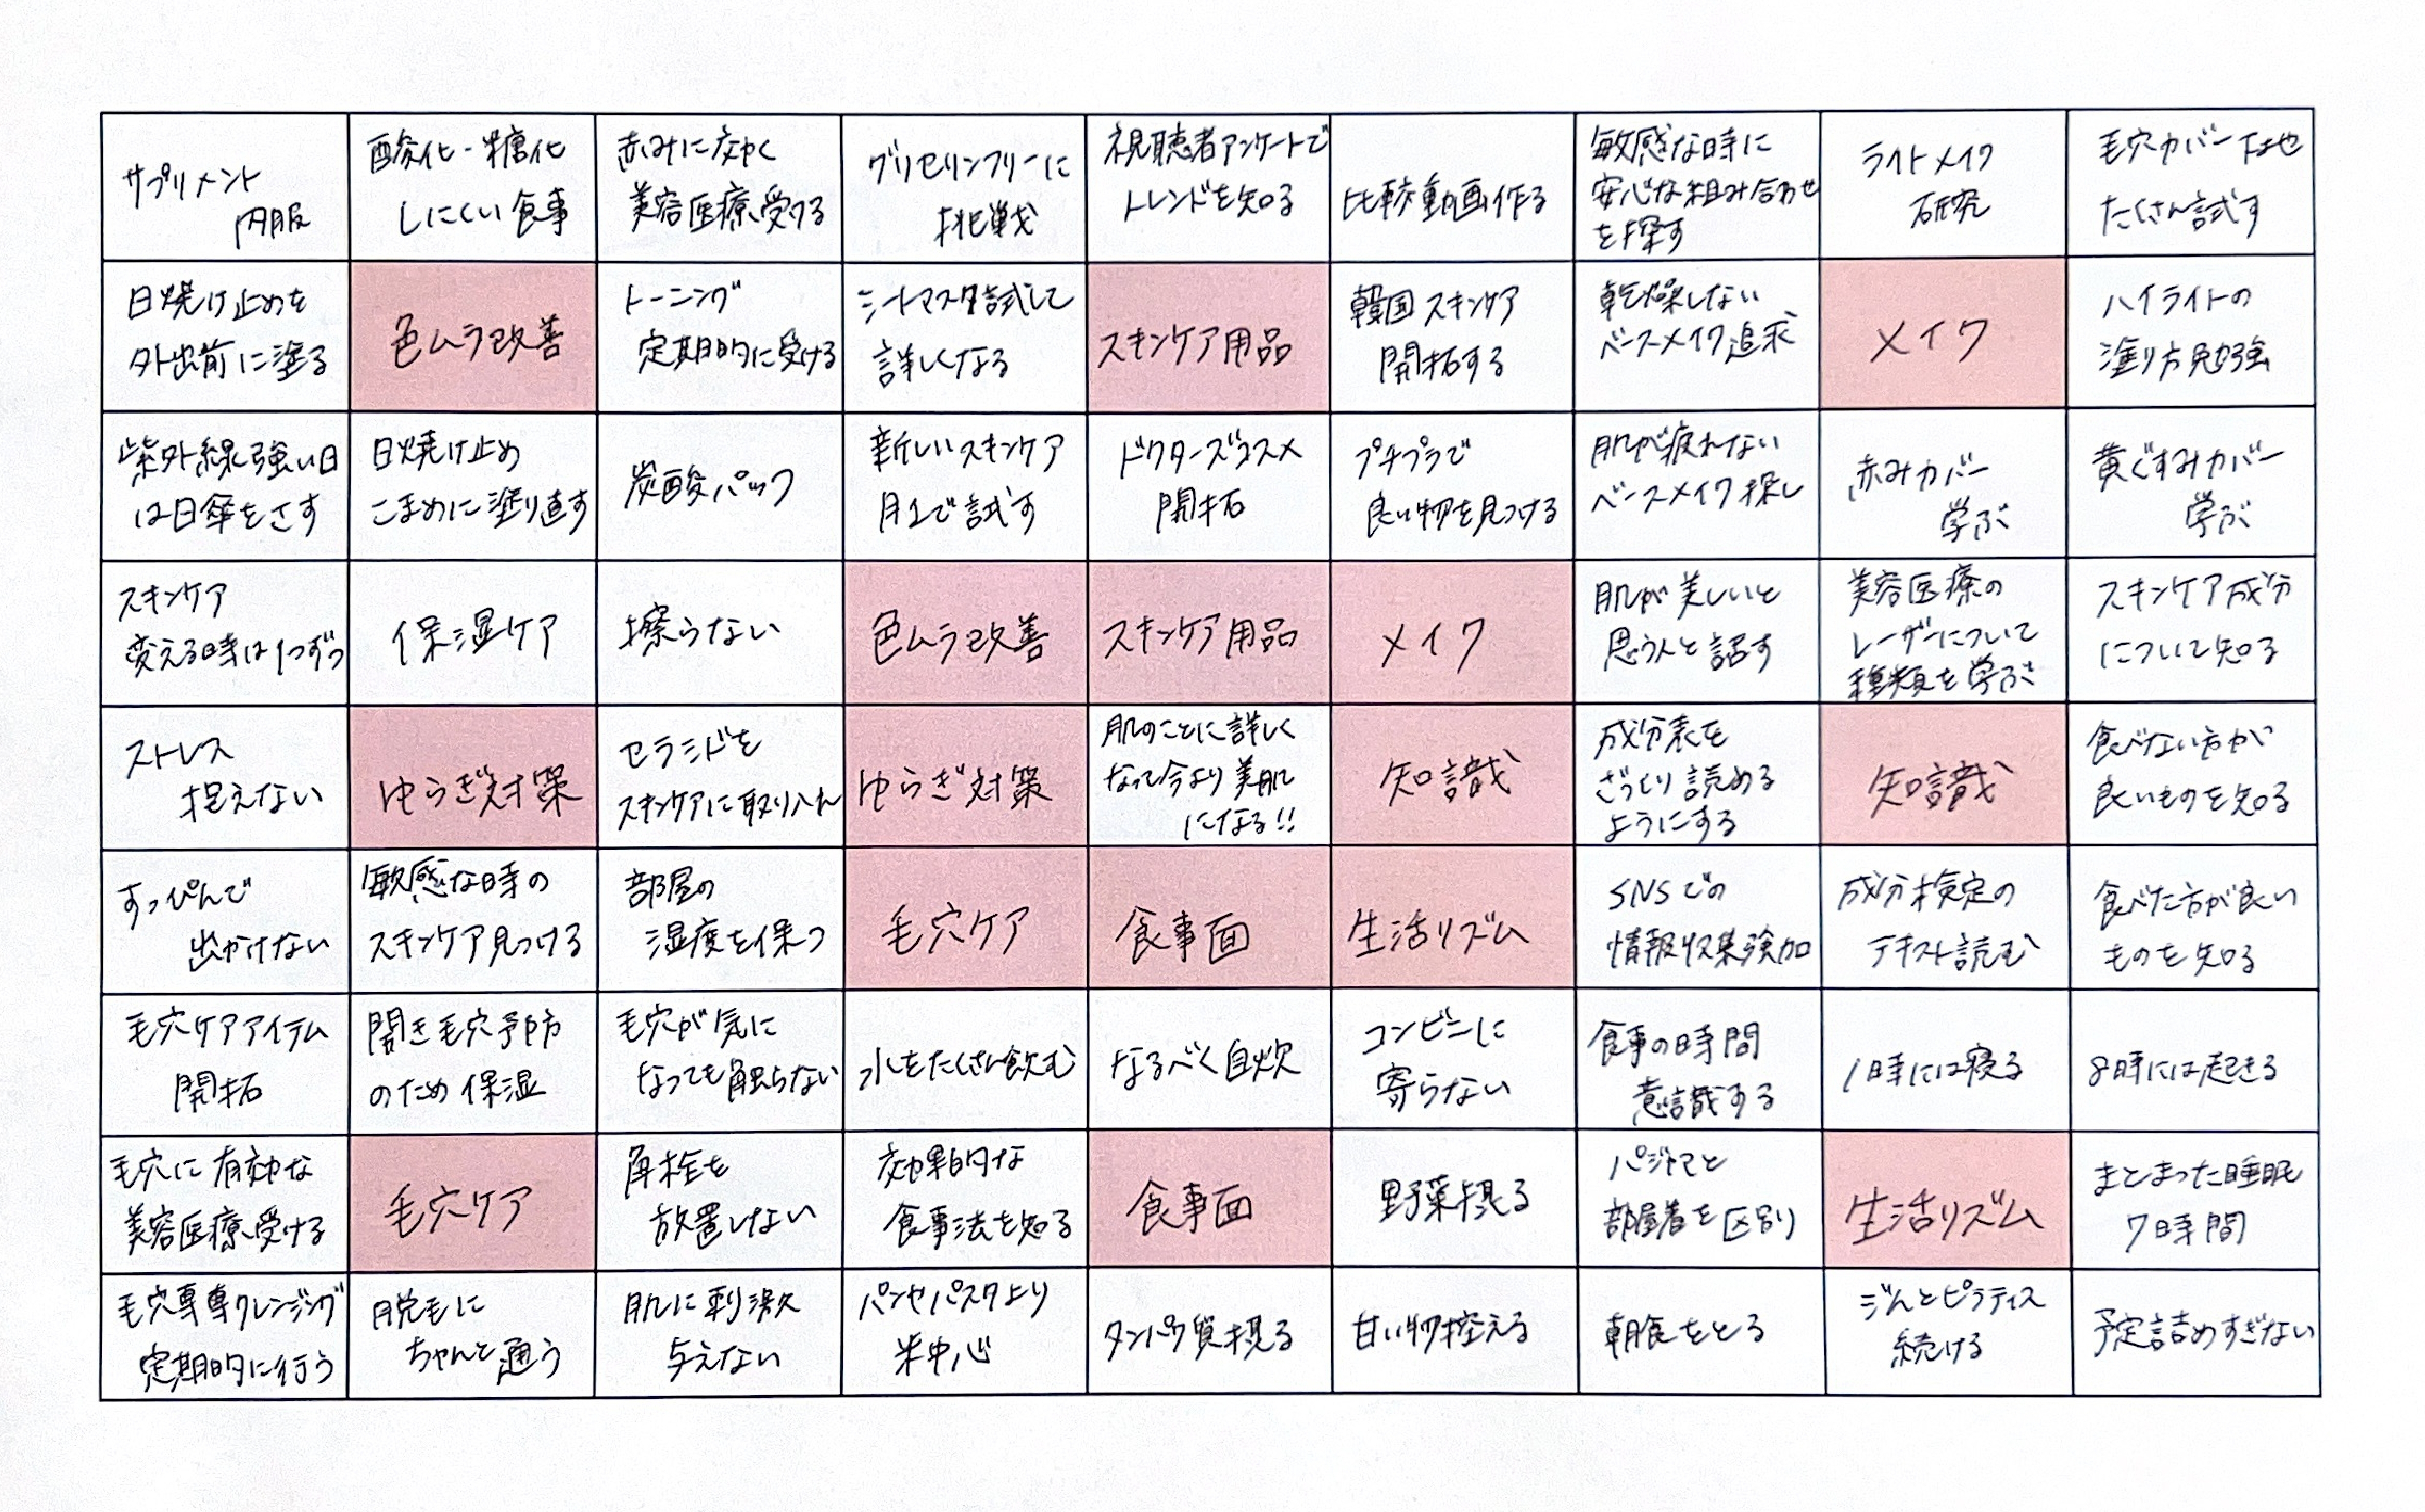 サプリメント
内服
酸化・糖化
しにくい食事
赤みに効く
美容医療受ける
グリセリンフリーに
挑戦
視聴者アンケートで
トレンドを知る
比較動画作る
敏感な時に
安心な組み合わせ
を探す
ライトメイク
研究
毛穴カバー下地
たくさん試す
日焼け止めを
外出前に塗る
色ムラ改善
トーニング
定期的に受ける
シートマスク試して
詳しくなる
スキンケア用品
韓国スキンケア
開拓する
乾燥しない
ベースメイク追求
メイク
ハイライトの
塗り方勉強
紫外線強い日
は日傘をさす
日焼け止め
こまめに塗り直す
炭酸パック
新しいスキンケア
月1で試す
ドクターズコスメ
開拓
プチプラで
良い物を見つける
肌が疲れない
ベースメイク探し
赤みカバー
学ぶ
黄ぐすみカバー
学ぶ
スキンケア
変える時は1つずつ
保湿ケア
擦らない
色ムラ改善
スキンケア用品
メイク
肌が美しいと
思う人と話す
美容医療の
レーザーについて
種類を学ぶ
スキンケア成分
について知る
ストレス
抱えない
ゆらぎ対策
セラミドを
スキンケアに取り入れ
ゆらぎ対策
肌のことに詳しく
なって今より美肌
になる!!
知識
成分表を
ざっくり読める
ようにする
知識
食べない方が
良いものを知る
すっぴんで
出かけない
敏感な時の
スキンケア見つける
部屋の
湿度を保つ
毛穴ケア
食事面
生活リズム
SNSでの
情報収集強加
成分検定の
テキスト読む
食べた方が良い
ものを知る
毛穴ケアアイテム
開拓
開き毛穴予防
のため保湿
毛穴が気に
なっても触らない
水をたくさん飲む
なるべく自炊
コンビニに
寄らない
食事の時間
意識する
1時には寝る
8時には起きる
毛穴に有効な
美容医療受ける
毛穴ケア
角栓を
放置しない
効果的な
食事法を知る
食事面
野菜摂る
パジャマと
部屋着を区別
生活リズム
まとまった睡眠
7時間
毛穴専専クレンジング
定期的に行う
脱毛に
ちゃんと通う
肌に刺激
与えない
パンやパスタより
米中心
タンパク質摂る
甘い物控える
朝食をとる
ジムとピラティス
続ける
予定詰めすぎない